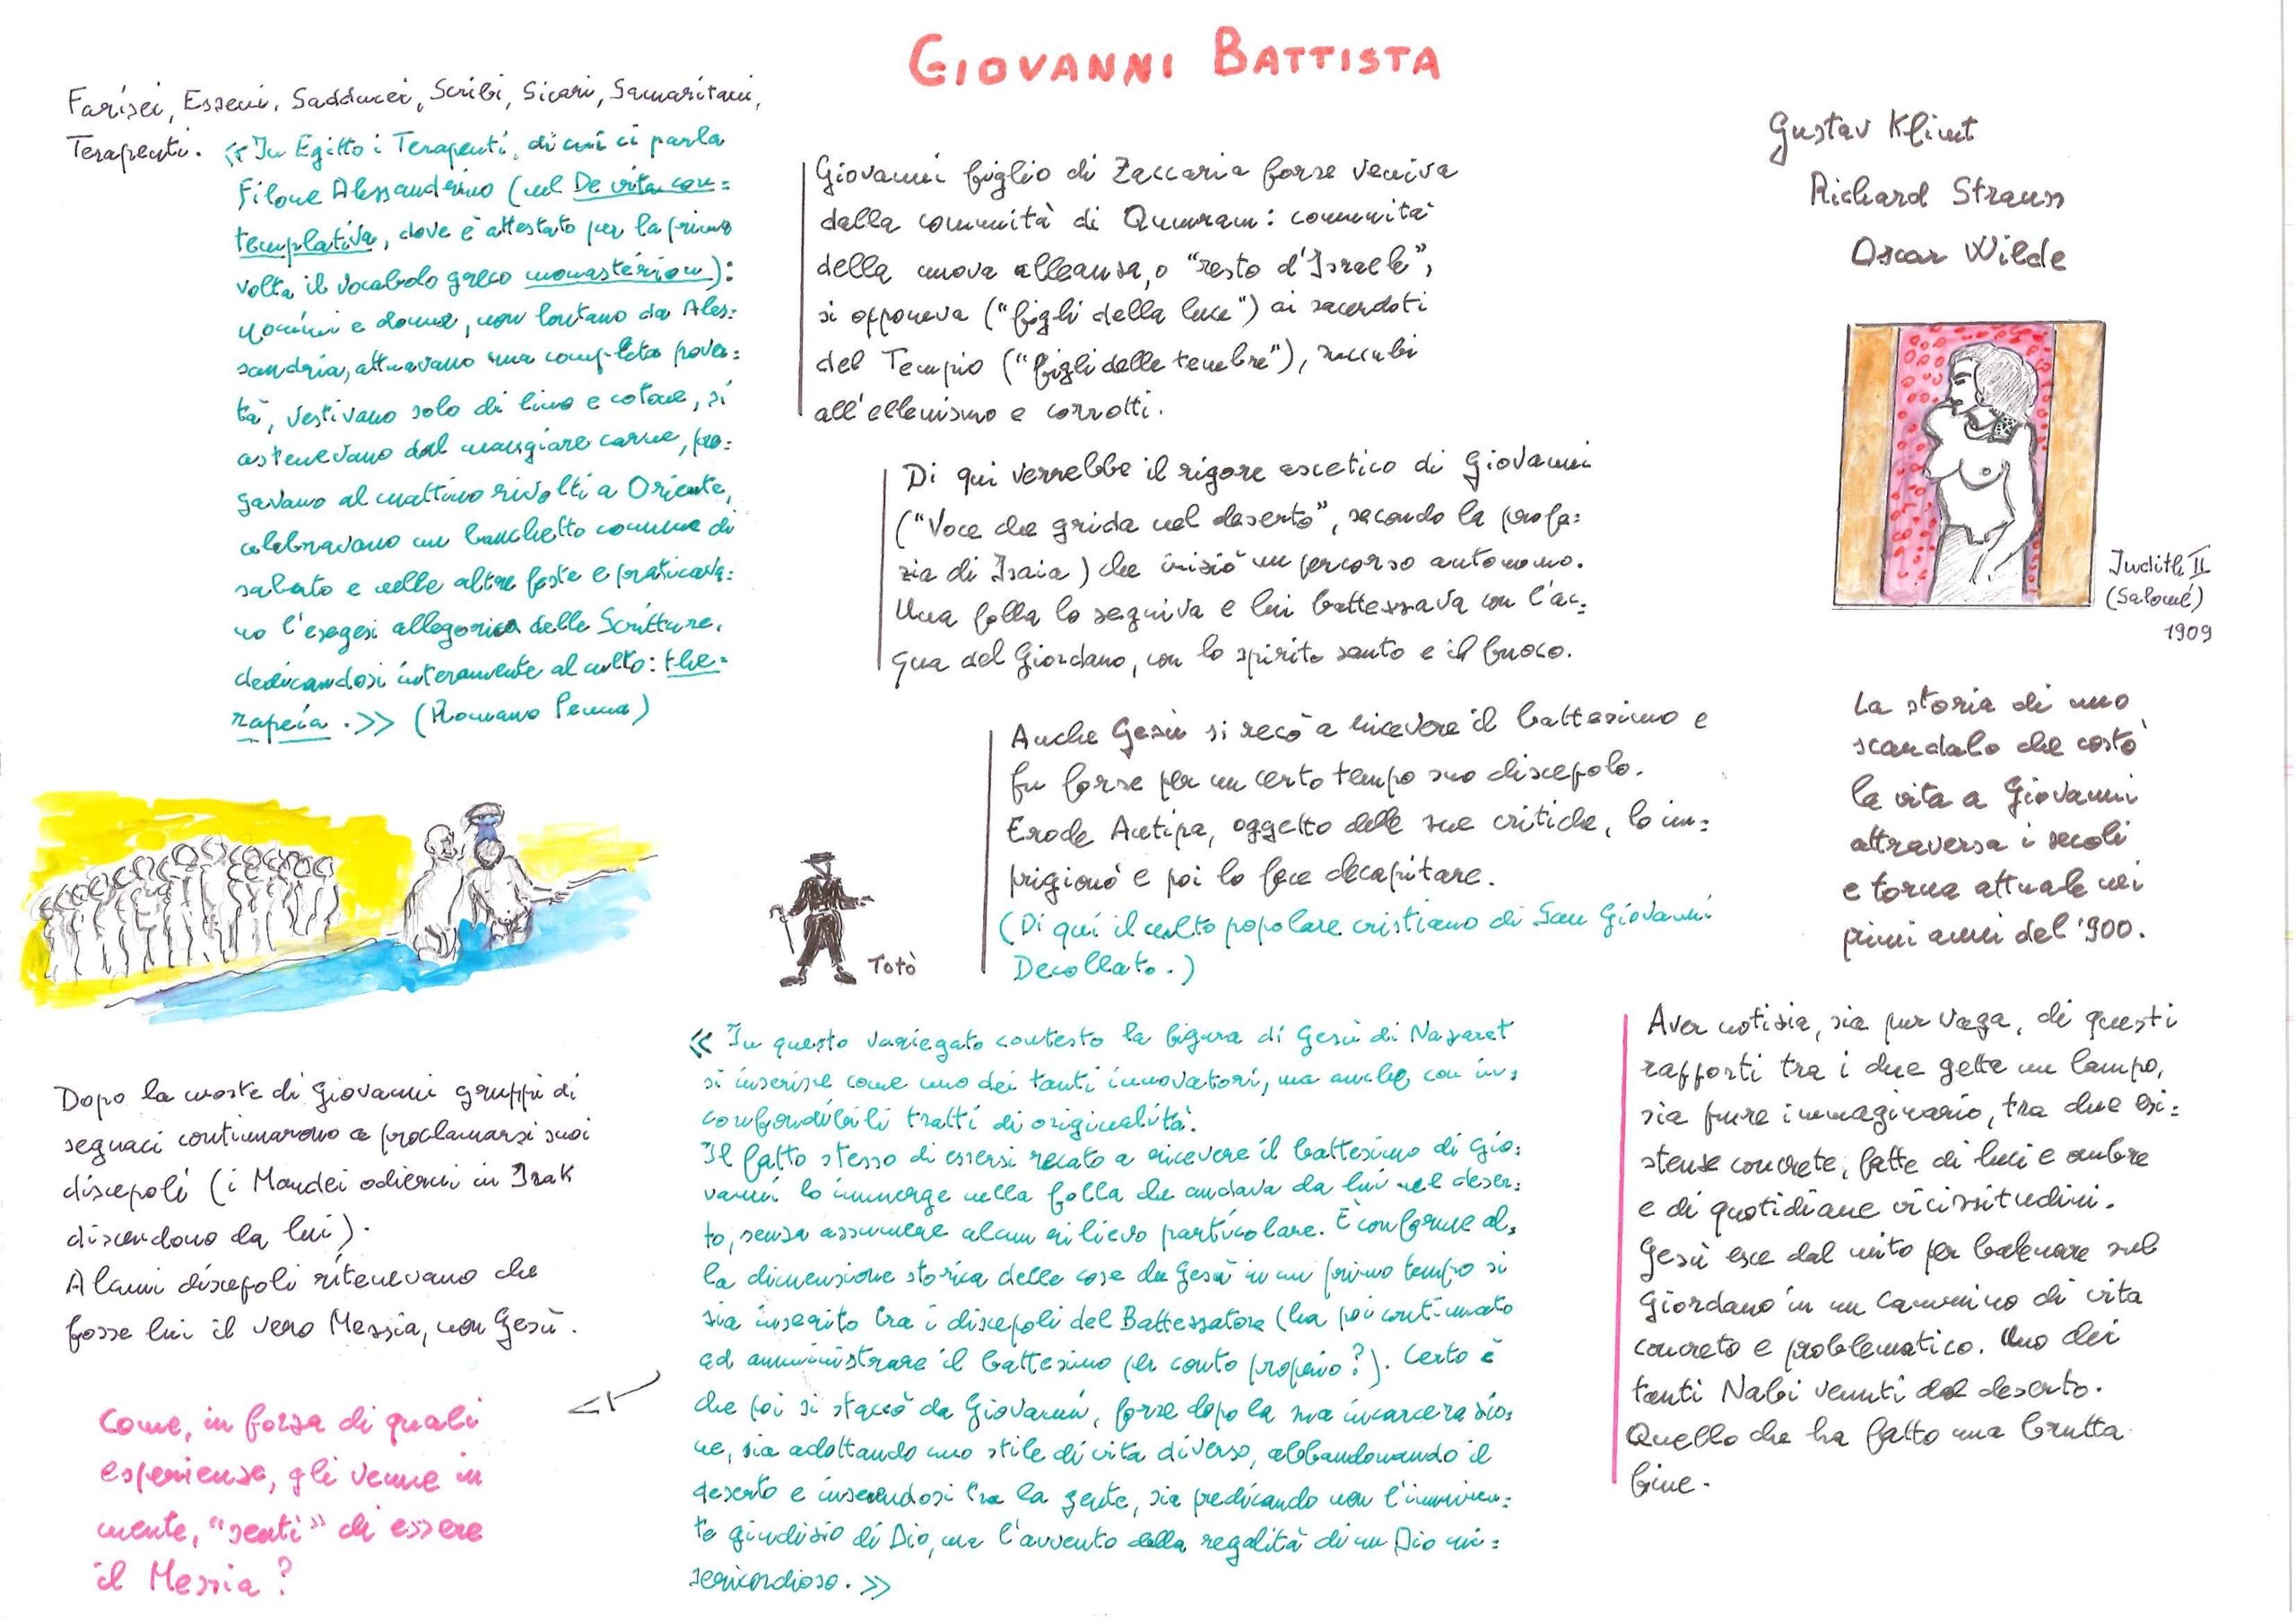 GIOVANNI BATTISTA
Farisei, Esseni, Sadducei, Scribi, Sicari, Samaritani,
Terapeuti. «In Egitto i Terapeuti, di cui ci parla
Filone Alessandrino (nel De vita con=
templativa, dove è attestato per la prima
volta il vocabolo greco monastérion):
uomini e donne, non lontano da Ales=
sandria, attuavano una completa pover=
tà, vestivano solo di lino e cotone, si
astenevano dal mangiare carne, pre=
gavano al mattino rivolti a Oriente,
celebravano un banchetto comune di
sabato e nelle altre feste e praticava=
no l'esegesi allegorica delle Scritture,
dedicandosi interamente al culto: the=
rapeía.» (Romano Penna)
Giovanni figlio di Zaccaria forse veniva
dalla comunità di Qumram: comunità
della nuova alleanza, o "resto d'Israele",
si opponeva ("figli della luce") ai sacerdoti
del Tempio ("figli delle tenebre"), succubi
all'ellenismo e corrotti.
Di qui verrebbe il rigore ascetico di Giovanni
("Voce che grida nel deserto", secondo la profe=
zia di Isaia) che iniziò un percorso autonomo.
Una folla lo seguiva e lui battezzava con l'ac=
qua del Giordano, con lo spirito santo e il fuoco.
Anche Gesù si recò a ricevere il battesimo e
fu forse per un certo tempo suo discepolo.
Erode Antipa, oggetto delle sue critiche, lo im=
prigionò e poi lo fece decapitare.
(Di qui il culto popolare cristiano di San Giovanni
Decollato.)
Totò
Gustav Klimt
Richard Strauss
Oscar Wilde
Judith II
(Salomé)
1909
La storia di uno
scandalo che costò
la vita a Giovanni
attraversa i secoli
e torna attuale nei
primi anni del '900.
Dopo la morte di Giovanni gruppi di
seguaci continuarono a proclamarsi suoi
discepoli (i Mandei odierni in Irak
discendono da lui).
Alcuni discepoli ritenevano che
fosse lui il vero Messia, non Gesù.
Come, in forza di quali
esperienze, gli venne in
mente, "sentì" di essere
il Messia?
«In questo variegato contesto la figura di Gesù di Nazaret
si inserisce come uno dei tanti innovatori, ma anche con in=
confondibili tratti di originalità.
Il fatto stesso di essersi recato a ricevere il battesimo di Gio=
vanni lo immerge nella folla che andava da lui nel deser=
to, senza assumere alcun rilievo particolare. È conforme al=
la dimensione storica delle cose che Gesù in un primo tempo si
sia inserito tra i discepoli del Battezzatore (ha poi continuato
ad amministrare il battesimo per conto proprio?). Certo è
che poi si staccò da Giovanni, forse dopo la sua incarcerazio=
ne, sia adottando uno stile di vita diverso, abbandonando il
deserto e inserendosi tra la gente, sia predicando non l'imminen=
te giudizio di Dio, ma l'avvento della regalità di un Dio mi=
sericordioso.»
Aver notizia, sia pur vaga, di questi
rapporti tra i due gette un lampo,
sia pure immaginario, tra due esi=
stenze concrete, fatte di luci e ombre
e di quotidiane vicissitudini.
Gesù esce dal mito per balenare sul
Giordano in un cammino di vita
concreto e problematico. Uno dei
tanti Nabi venuti dal deserto.
Quello che ha fatto una brutta
fine.